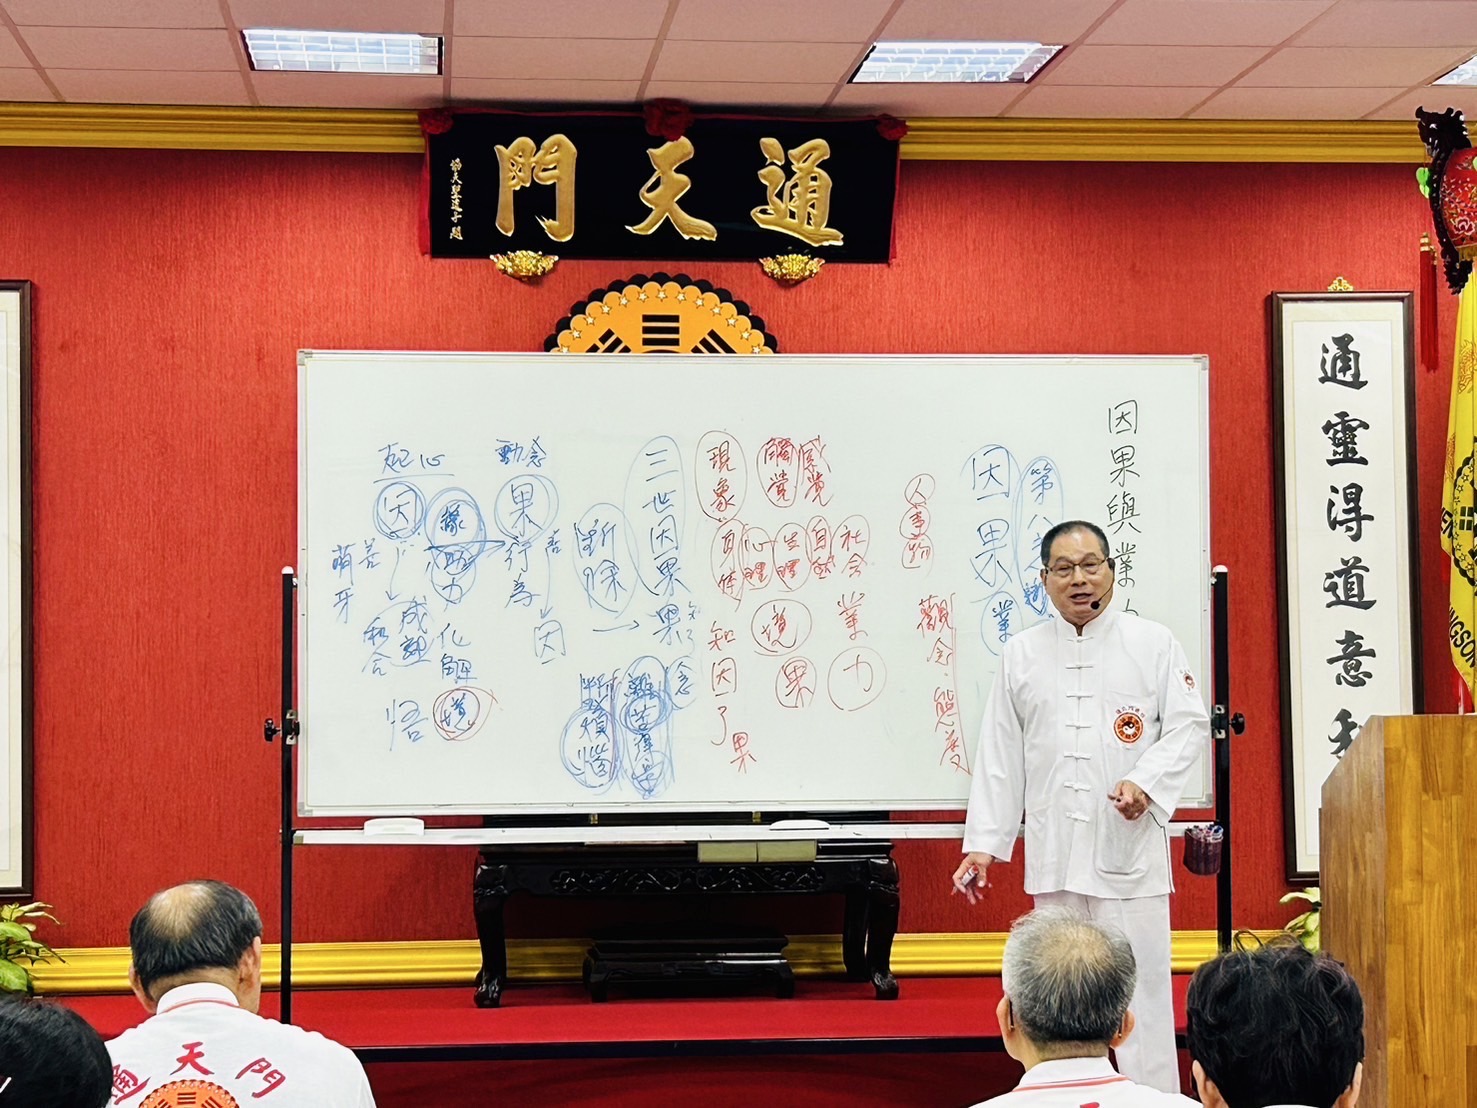 通天門
通靈得道意
因果與業
第八
因果業
人事物
觀念態度
感覺
觸覺
現象
社會
自然
生理
心理
身体
業力
境果
知因了果
三世因果
果
念
斷除
斷煩惱
動念
果
行為
因
起心
因
緣
助力
善
萌牙
和合
成熟
化解
境
悟
通天門